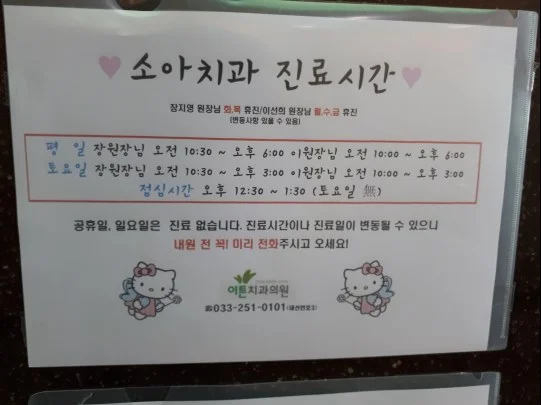 ♥ 소아치과 진료시간 ♥
장지영 원장님 화,목 휴진/이선희 원장님 월,수,금 휴진
(변동사항 있을 수 있음)
평 일 장원장님 오전 10:30 ~ 오후 6:00 이원장님 오전 10:00 ~ 오후 6:00
토요일 장원장님 오전 10:30 ~ 오후 3:00 이원장님 오전 10:00 ~ 오후 3:00
점심시간 오후 12:30 ~ 1:30 (토요일 無)
공휴일, 일요일은 진료 없습니다. 진료시간이나 진료일이 변동될 수 있으니
내원 전 꼭! 미리 전화주시고 오세요!
이튼치과의원
☎033-251-0101(내선번호3)